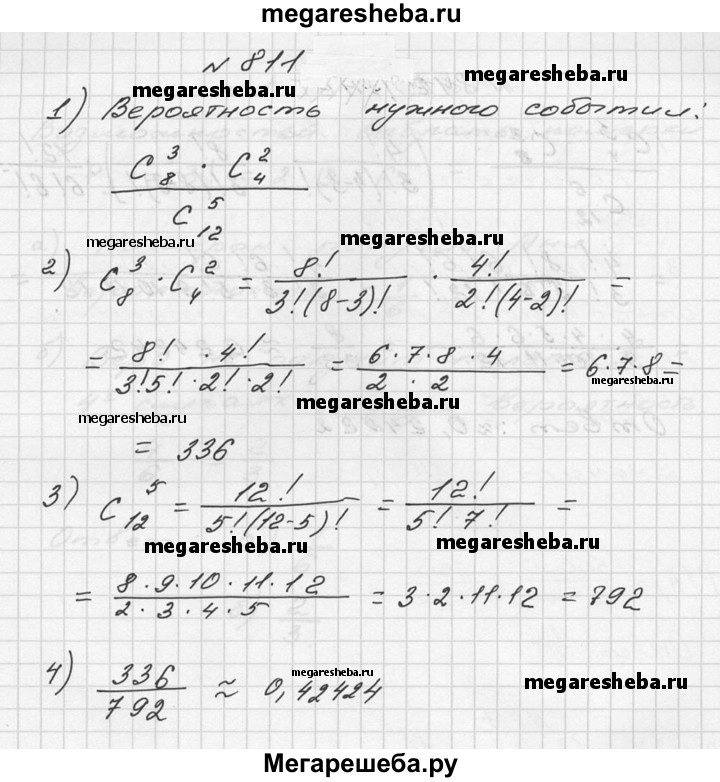 megaresheba.ru
№ 811
megaresheba.ru megaresheba.ru
1) Вероятность нужного события:
C₈³ · C₄² / C₁₂⁵
megaresheba.ru megaresheba.ru
2) C₈³ · C₄² = 8! / 3!(8-3)! · 4! / 2!(4-2)! =
megaresheba.ru
= 8! · 4! / 3!5! · 2! · 2! = 6·7·8·4 / 2 · 2 = 6·7·8 =
megaresheba.ru
megaresheba.ru megaresheba.ru
= 336
3) C₁₂⁵ = 12! / 5!(12-5)! = 12! / 5! 7! =
megaresheba.ru megaresheba.ru
= 8·9·10·11·12 / 2·3·4·5 = 3·2·11·12 = 792
megaresheba.ru megaresheba.ru
4) 336 / 792 ≈ 0,42424
Мегарешеба.ру